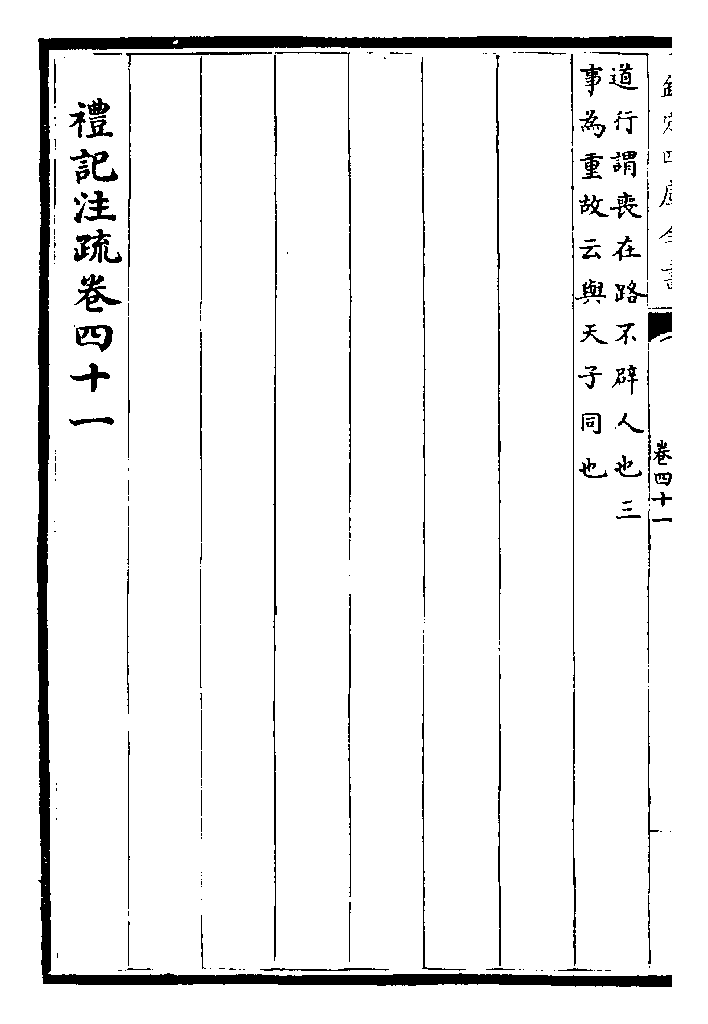 欽定四庫全書
卷四十一
道行謂喪在路不辟人也三
事為重故云與天子同也
禮記注疏卷四十一